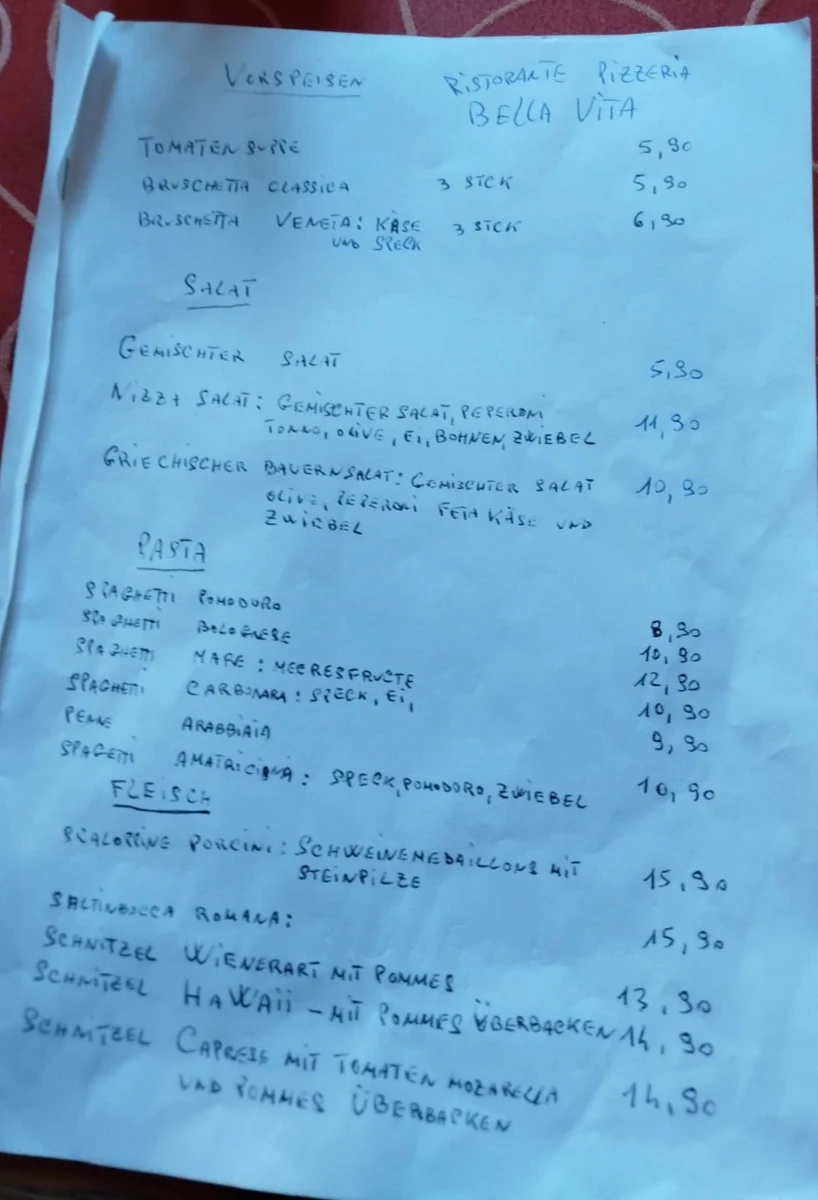 VORSPEISEN RISTORANTE PIZZERIA
BELLA VITA
TOMATEN SUPPE 5,90
BRUSCHETTA CLASSICA 3 STCK 5,90
BRUSCHETTA VENETA: KÄSE 3 STCK 6,90
UND SPECK
SALAT
GEMISCHTER SALAT 5,90
NIZZA SALAT: GEMISCHTER SALAT, PEPERONI 11,90
TONNO, OLIVE, EI, BOHNEN, ZWIEBEL
GRIECHISCHER BAUERNSALAT: GEMISCHTER SALAT 10,90
OLIVE, PEPERONI FETA KÄSE UND
ZWIEBEL
PASTA
SPAGHETTI POMODORO 8,90
SPAGHETTI BOLOGNESE 10,90
SPAGHETTI MARE: MEERESFRUCTE 12,90
SPAGHETI CARBONARA: SPECK, EI, 10,90
PENNE ARABBIATA 9,90
SPAGETTI AMATRICIANA: SPECK, POMODORO, ZWIEBEL 10,90
FLEISCH
SCALOPPINE PORCINI: SCHWEINEMEDAILLONS MIT
STEINPILZE 15,90
SALTINBOCCA ROMANA: 15,90
SCHNITZEL WIENERART MIT POMMES 13,90
SCHNITZEL HAWAII - MIT POMMES ÜBERBACKEN 14,90
SCHNITZEL CAPRESE MIT TOMATEN MOZARELLA 14,90
UND POMMES ÜBERBACKEN